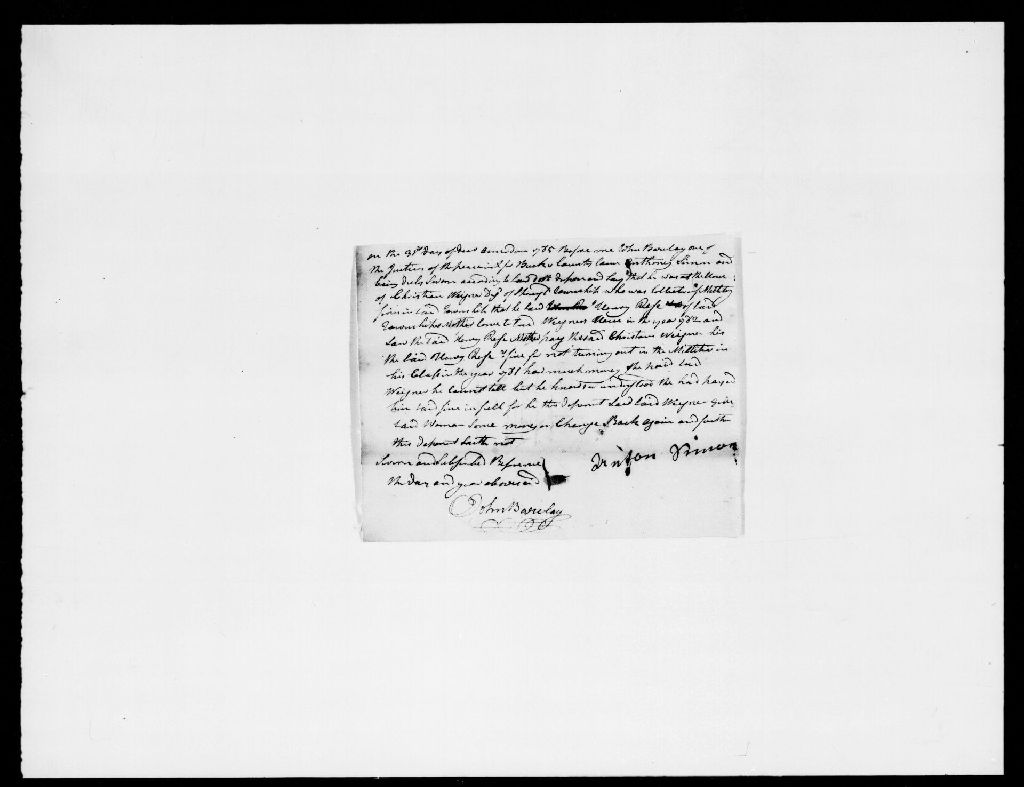 on the 31st Day of Dec Anno dom 1785 Before me John Barclay one of
the Justices of the peace in & for Bucks County Came Anthony Simon and
being Duly Sworn according to Law doth depose and Say that he was at the House
of Christian Weigner of township who was Collector of Militia
fines in said township that he said Henry Rese of said
township Mother Come to said Weigners House in the year 1782 and
Saw the said Henry Rese Mother pay the said Christian Weigner his
the said Henry Rese fine for not turning out in the Militia in
his Class in the year 1781 how much money She paid said
Weigner he Cannot tell but he understood She had payed
him said fine in full for he this deponent Said Weigner give
said Woman Some money or Change Back again and further
this deponent Saith not
Sworn and Subscribed Before me
the Day and year abovesaid
Anton Simon
John Barclay